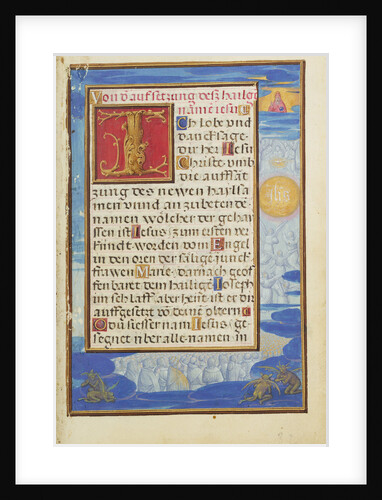 Von d' aufsetzung desz hailigen
namen iesu
Ich lobe vnd
danck sage
dir her Iesu
Christe vmb
die auffsät
zung des newen hailsa
men vnnd anzubetendē
namen wölcher der gehai
ssen ist Iesus zum ersten ver
kündt worden vom Engel
in den oren der sälige junck
frawen Marie: darnach geof
fenbaret dem hailigē Joseph
im schlaff. aber heut ist er dir
auffgesetzt vō deinē ältern:
O du süesser nam Iesus: ge
segnet über alle namen: in
ihs